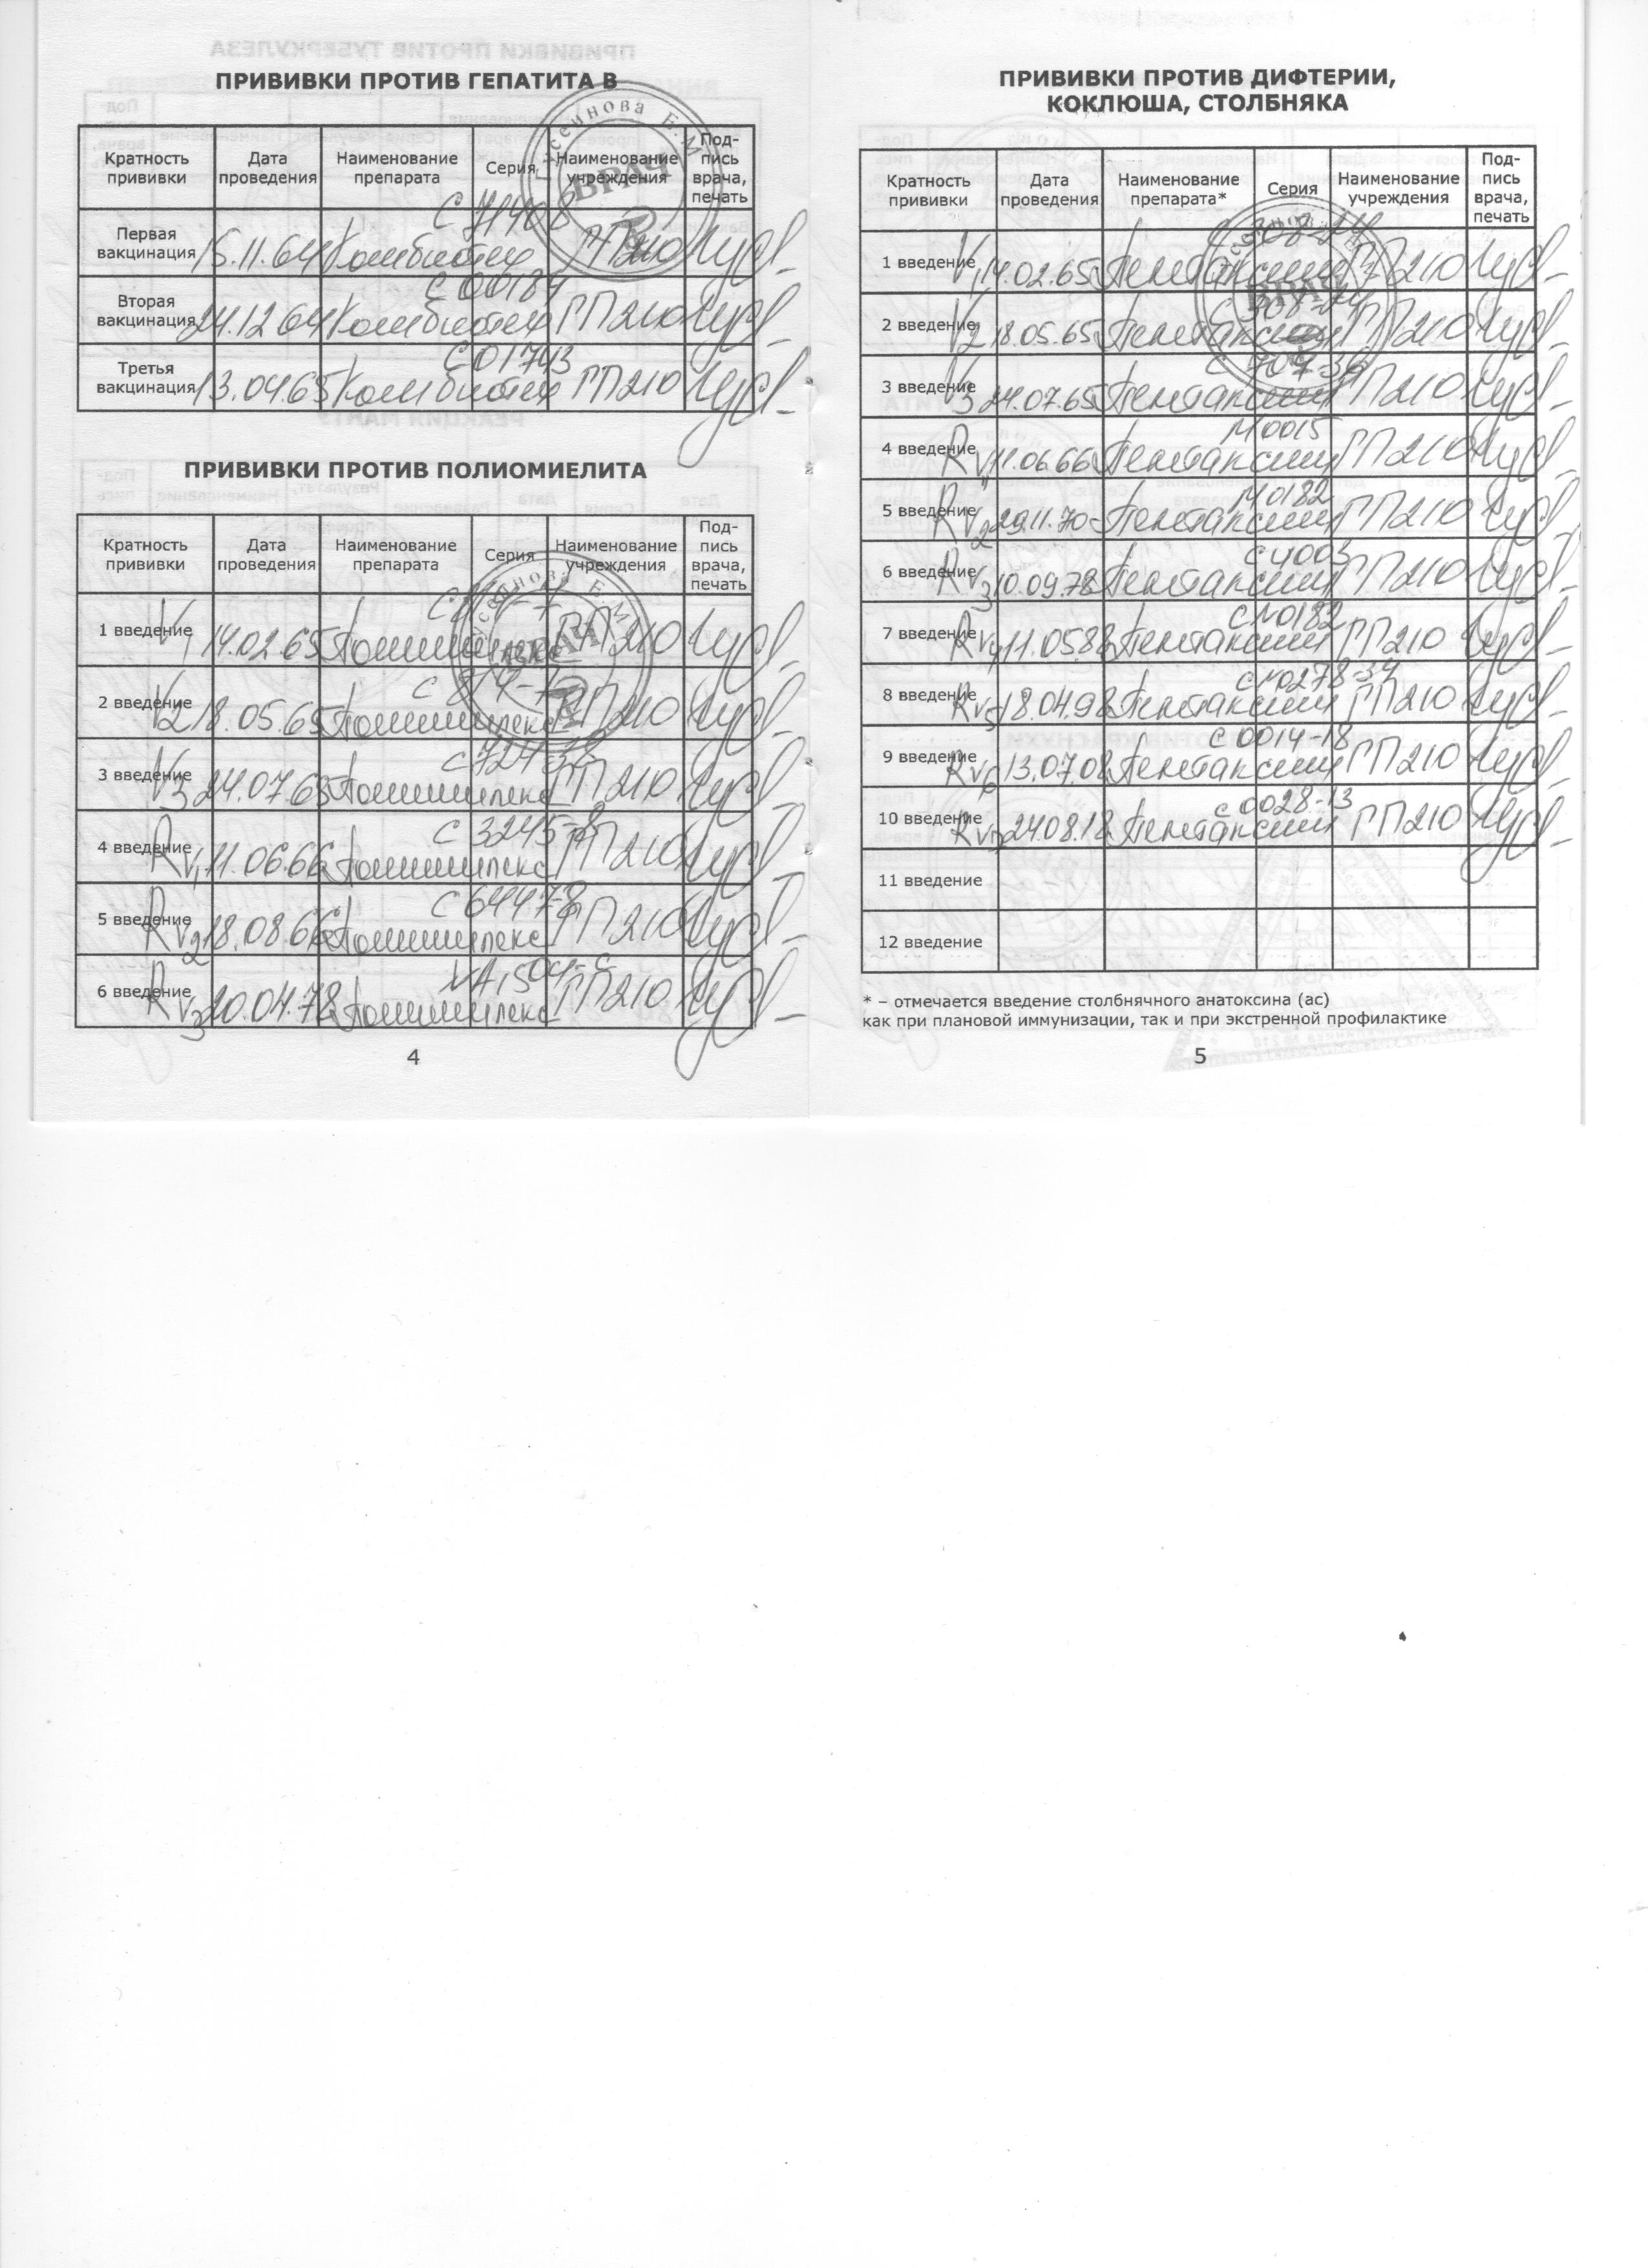 ПРИВИВКИ ПРОТИВ ГЕПАТИТА В
Кратность прививки Дата проведения Наименование препарата Серия Наименование учреждения Под-пись врача, печать
Первая вакцинация 15.11.64 Комбиотех ГП210
Вторая вакцинация 24.12.64 Комбиотех С00187 ГП210
Третья вакцинация 13.04.65 Комбиотех С01743 ГП210
ПРИВИВКИ ПРОТИВ ПОЛИОМИЕЛИТА
Кратность прививки Дата проведения Наименование препарата Серия Наименование учреждения Под-пись врача, печать
1 введение V1 14.02.65 Полимилекс ГП210
2 введение V2 18.05.65 Полимилекс ГП210
3 введение V3 24.07.65 Полимилекс ГП210
4 введение RV1 11.06.66 Полимилекс С3245-8 ГП210
5 введение RV2 18.08.66 Полимилекс С6447-8 ГП210
6 введение RV3 20.04.78 Полимилекс ГП210
4
ПРИВИВКИ ПРОТИВ ДИФТЕРИИ,
КОКЛЮША, СТОЛБНЯКА
Кратность прививки Дата проведения Наименование препарата* Серия Наименование учреждения Под-пись врача, печать
1 введение V1 14.02.65 Пентаксим ГП210
2 введение V2 18.05.65 Пентаксим ГП210
3 введение V3 24.07.65 Пентаксим С707-36 ГП210
4 введение RV1 11.06.66 Пентаксим М0015 ГП210
5 введение RV2 29.11.70 Пентаксим М0182 ГП210
6 введение RV3 10.09.78 Пентаксим С4003 ГП210
7 введение RV4 11.05.88 Пентаксим СМ0182 ГП210
8 введение RV5 18.04.98 Пентаксим СМ0278-34 ГП210
9 введение RV6 13.07.08 Пентаксим С0014-18 ГП210
10 введение RV7 24.08.18 Пентаксим С0028-13 ГП210
11 введение
12 введение
* – отмечается введение столбнячного анатоксина (ас)
как при плановой иммунизации, так и при экстренной профилактике
5
ВРАЧ
ВРАЧ
ВРАЧ